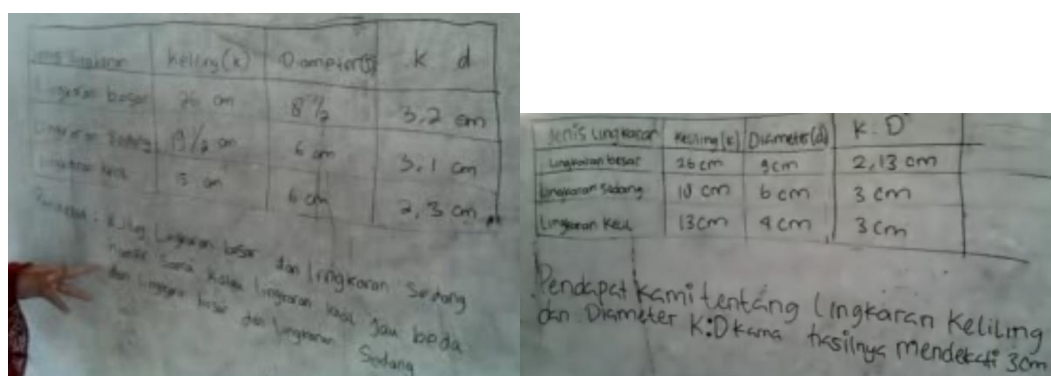 Keliling(k) Diameter(d) K d
Lingkaran besar 26 cm 8 1/2 3,2 cm
Lingkaran Sedang 19 1/2 cm 6 cm 3,1 cm
Lingkaran kecil cm 6 cm 2,3 cm
Lingkaran besar dan lingkaran Sedang
Sama kalau lingkaran kecil jau beda
dan besar dan lingkaran
Sedang
Jenis Lingkaran Keliling(k) Diameter(d) K : D
Lingkaran besar 26 cm 9 cm 2,13 cm
Lingkaran Sedang 18 cm 6 cm 3 cm
Lingkaran Kecil 13 cm 4 cm 3 cm
Pendapat kami tentang Lingkaran Keliling
dan Diameter K:D karna hasilnya mendekati 3cm